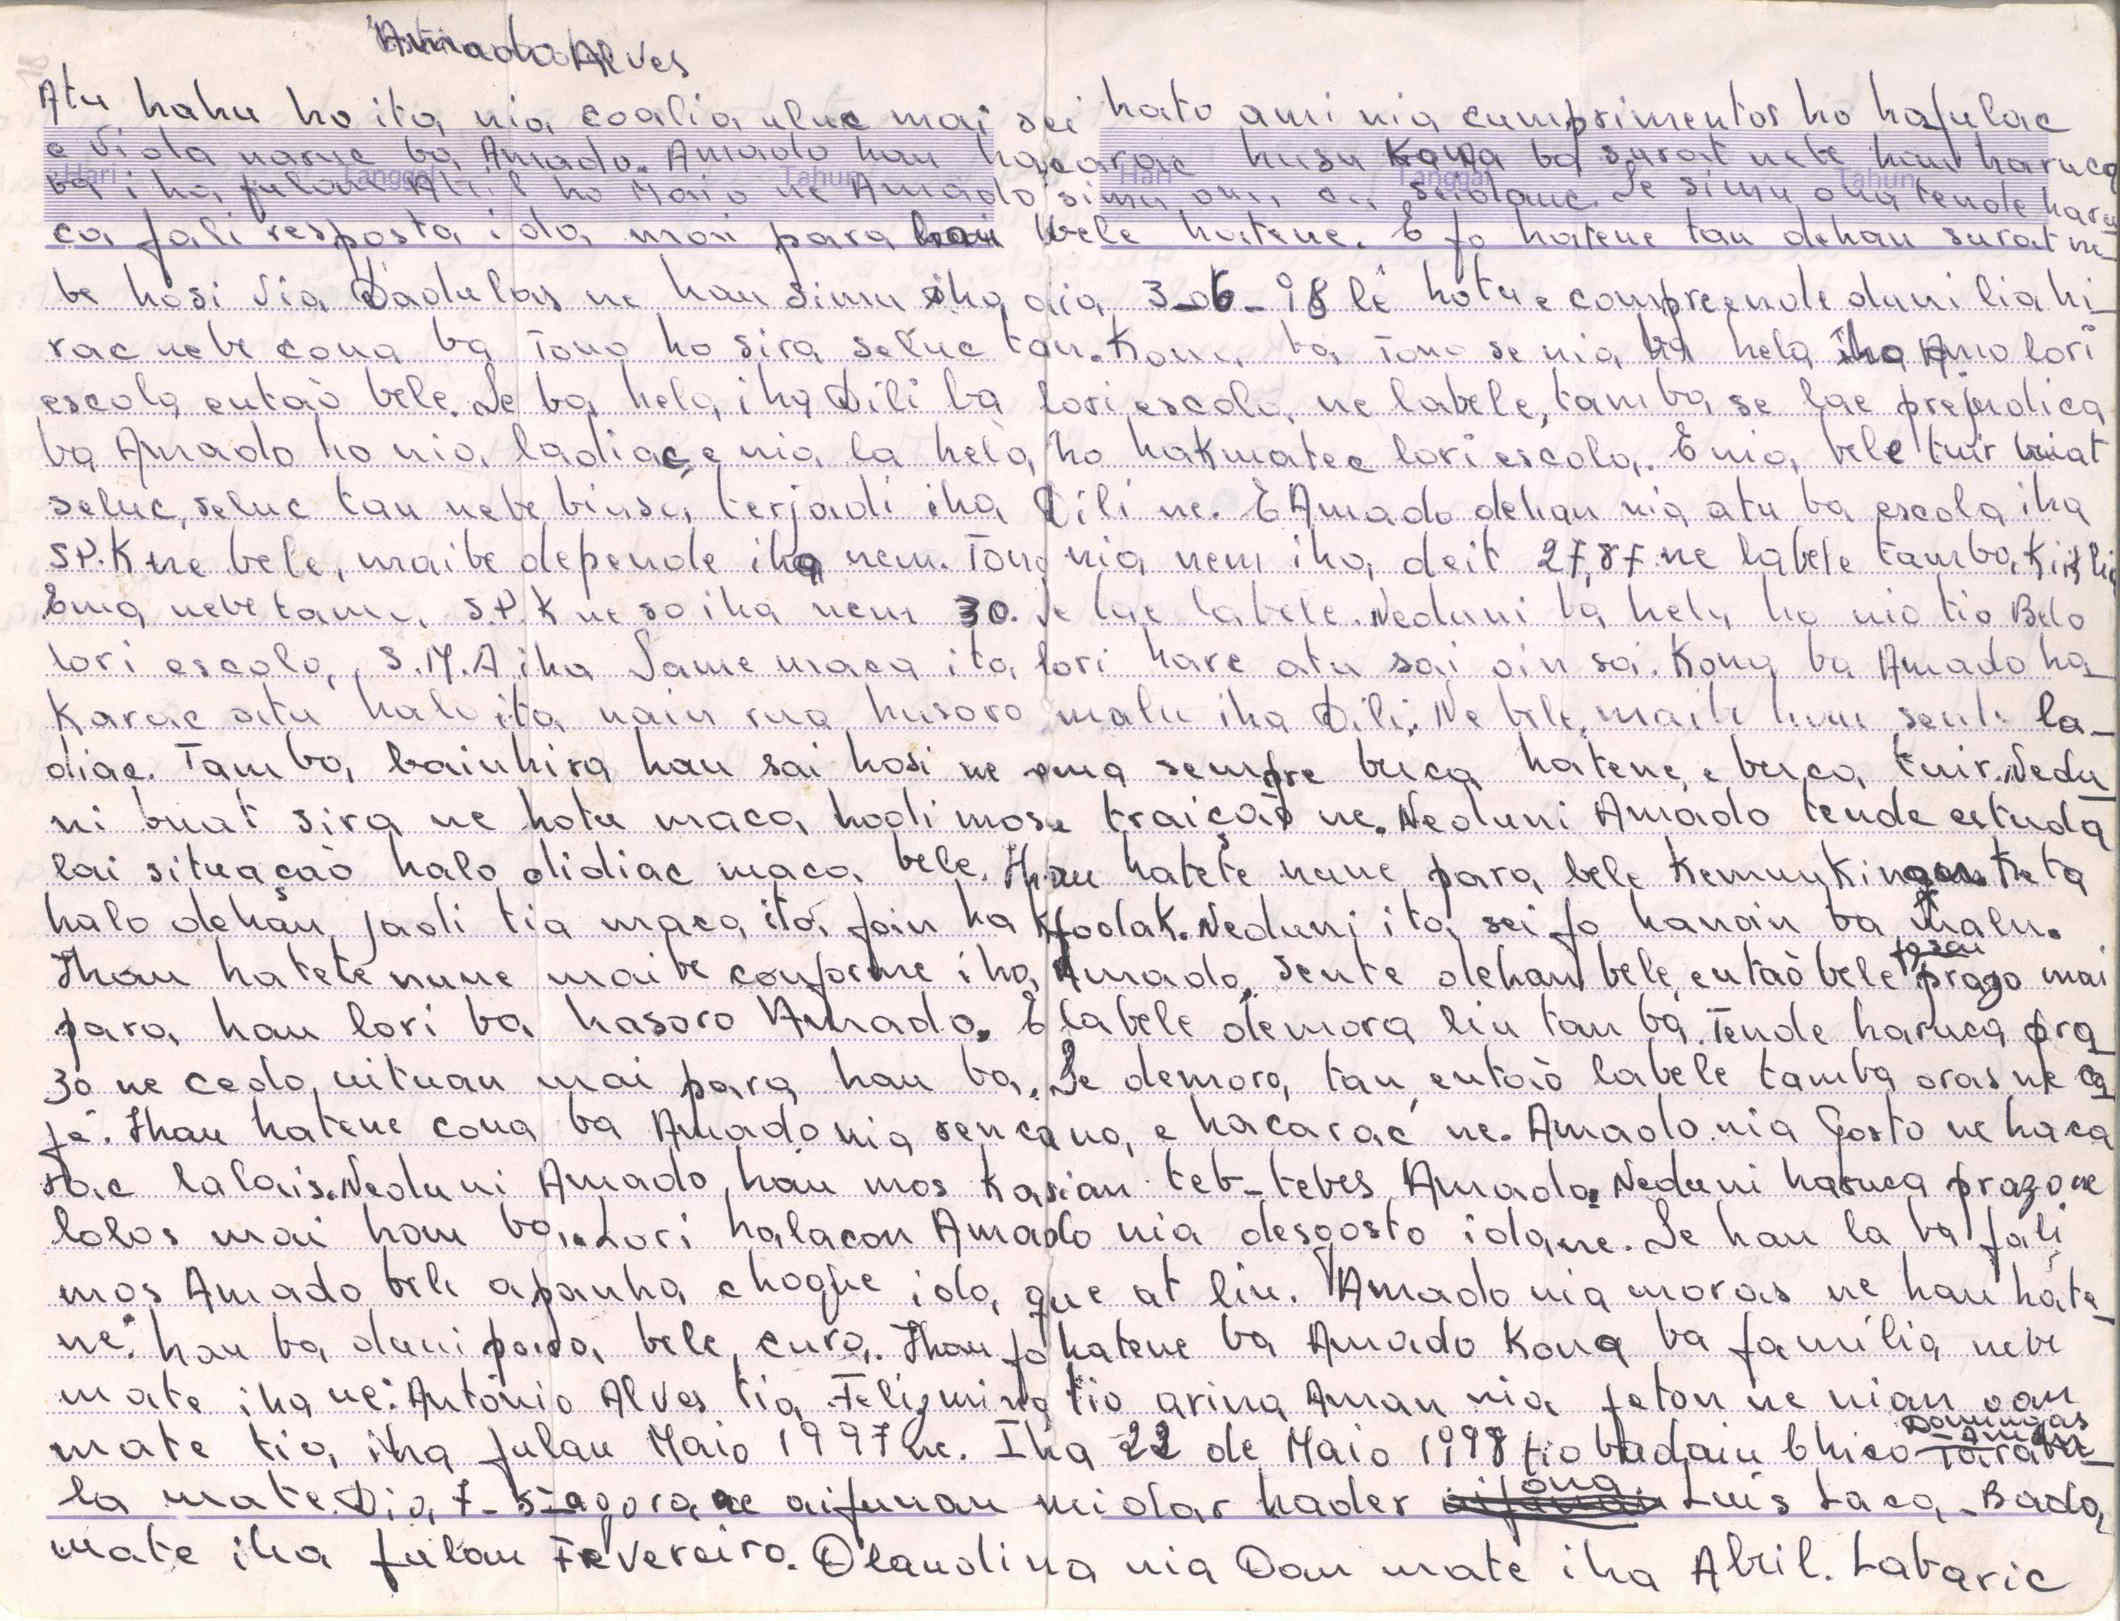 Amado Alves
Atu hahu ho ita nia coalia uluc mai sei hato ami nia cumprimentos ho hafulac
e vida naruc ba Amado. Amado hau hacarac husu kona ba surat nebe hau haruca
ba iha fulan Abril ho Maio ne Amado simu ona ou seidauc. Se simu ona tende haru
Hari Tanggal Tahun Hari Tanggal Tahun
ca fali resposta ida mai para hau bele hatene. E fo hatene tan dehan surat ne_
be hosi Via Dadulas ne hau simu iha dia 3_06_98 lé hotu e compreende duni lia hi_
rac nebe cona ba Tono ho sira seluc tan. Kona ba Tono se nia ba hela iha Amo lori
escola entaò bele. Se ba hela iha Dili ba lori escola ne labele, tamba se lae prejudica
ba Amado ho nia ladiac e nia la hela ho hakmatec lori escola. E nia bele tuir buat
seluc, seluc tan nebe biasa terjadi iha Dili ne. E Amado dehan nia atu ba escola iha
S.P.K ne bele, maibe depende iha nem. Tono nia nem iha deit 27,87 ne labele tamba
Ema nebe tama S.P.K ne so iha nem 30. Se lae labele. Neduni ba hela ho nia tio Belo
lori escola S.M.A iha Same maca ita lori hare atu sai oin sa. Kona ba Amado ha_
karac atu halo ita nain rua hasoro malu iha Dili. Ne bele, maibe hau sente la_
diac. Tamba, bainhira hau sai hosi ne ema sempre buca hatene e buca tuir. Nedu_
ni buat sira ne hotu maca hodi mosu traiçaò ne. Neduni Amado tende estuda
lai situaçaò halo didiac maca bele. Hau hatete nune para bele kemunkinan keta
halo dehan jadi tia maca ita foin hakfodak. Neduni ita sei fo hanoin ba malu.
Hau hatete nune maibe conforme iha Amado, sente dehan bele, entaò bele fo sai prazo mai
para hau lori ba hasoro Amado. E labele demora liu tan ba. Tende haruca pra_
zo ne cedo uituan mai para hau ba. Se demora tan, entaò labele tamba oras ne ca
fé. Hau hatene cona ba Amado nia rencana e hacarac ne. Amado nia Gosto ne haca
rac lalais. Neduni Amado, hau mos kasian teb-tebes Amado. Neduni haruca prazo ne
lolos mai hau ba. Lori halacon Amado nia desgosto ida ne. Se hau la ba fali
mos Amado bele apanha choque ida que at liu. Amado nia moras ne hau hate_
ne. hau ba duni para bele cura. Hau fo hatene ba Amado Kona ba família nebe
mate iha ne: António Alves tia Felizmina tio arina Aman nia feton ne nian oan
mate tia iha fulan Maio 1997 ne. Iha 22 de Maio 1998 tio badain Chico Domingas
la mate. Dia 7-5-agora ne aifunan midar hader ona Luís Laca-Bada
mate iha fulan Fevereiro. Olandina nia Oan mate iha Abril. Labaric